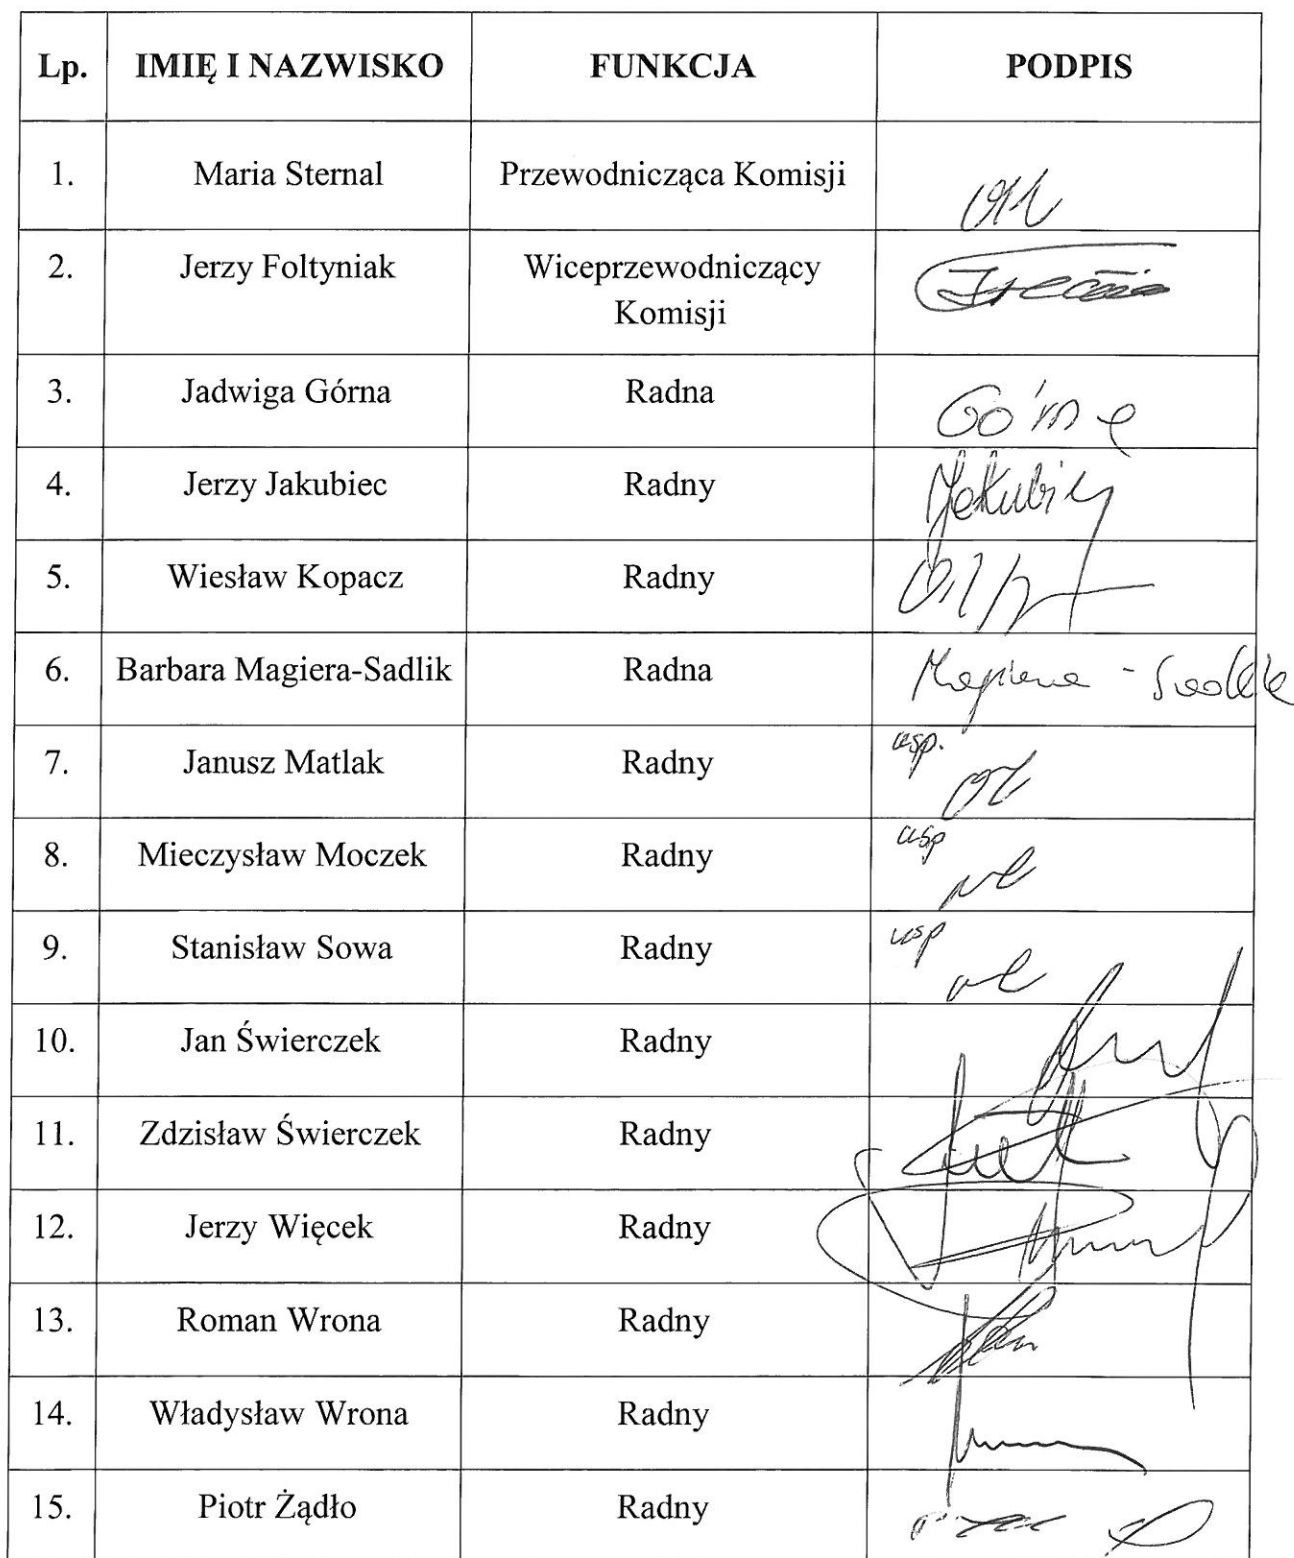 Lp. IMIĘ I NAZWISKO FUNKCJA PODPIS
1. Maria Sternal Przewodnicząca Komisji
2. Jerzy Foltyniak Wiceprzewodniczący
Komisji
3. Jadwiga Górna Radna Górna
4. Jerzy Jakubiec Radny Jakubiec
5. Wiesław Kopacz Radny
6. Barbara Magiera-Sadlik Radna Magiera - Sadlik
7. Janusz Matlak Radny usp.
8. Mieczysław Moczek Radny usp
9. Stanisław Sowa Radny usp
10. Jan Świerczek Radny
11. Zdzisław Świerczek Radny
12. Jerzy Więcek Radny
13. Roman Wrona Radny
14. Władysław Wrona Radny
15. Piotr Żądło Radny